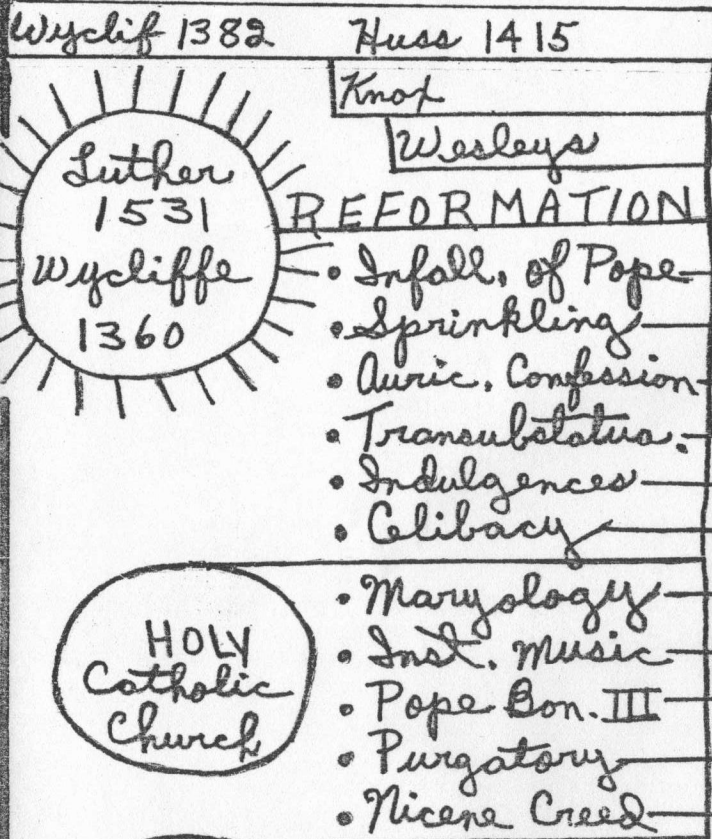 Wyclif 1382 Huss 1415
Knox
Wesleys
Luther
1531
Wycliffe
1360
REFORMATION
• Infall. of Pope
• Sprinkling
• Auric. Confession
• Transubstatua.
• Indulgences
• Celibacy
HOLY
Catholic
Church
• Maryology
• Inst. Music
• Pope Bon. III
• Purgatory
• Nicene Creed